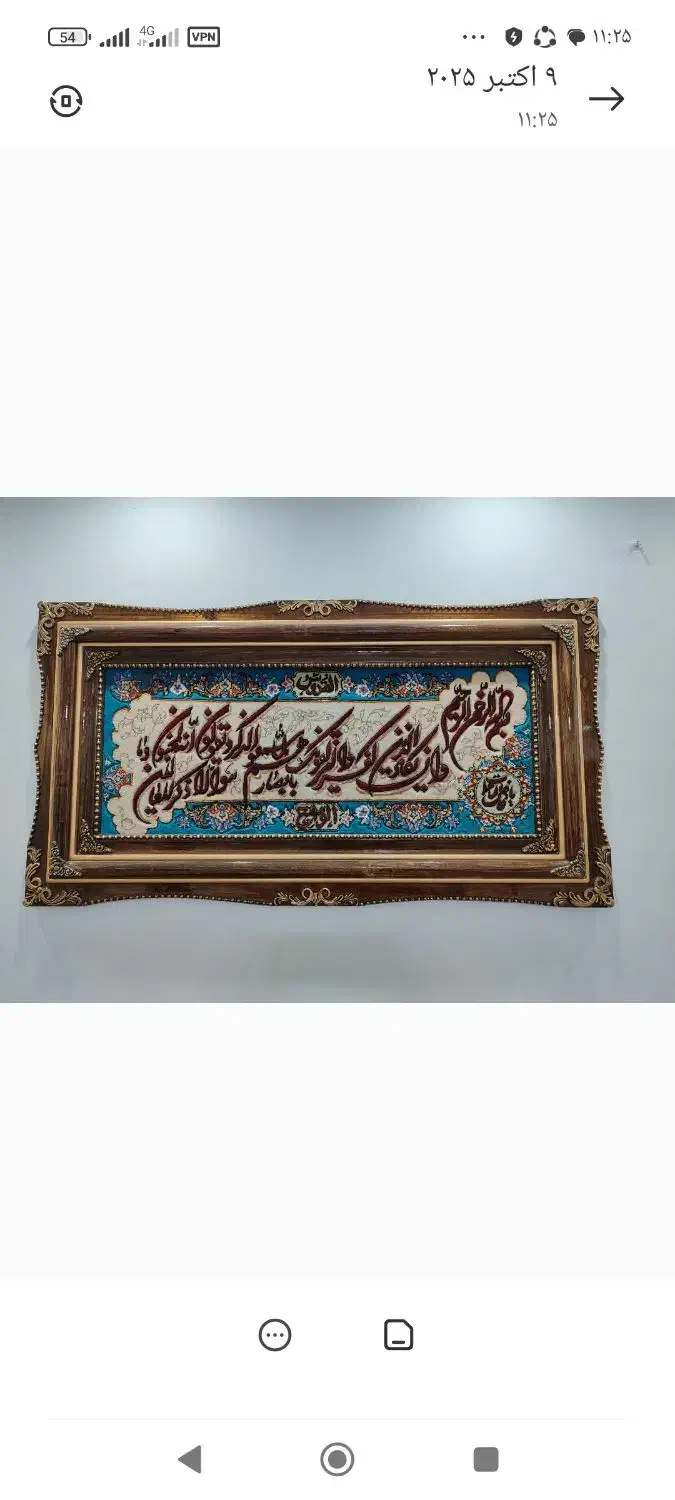 54 4G VPN ۱۱:۲۵
۹ اکتبر ۲۰۲۵
۱۱:۲۵
بسم الله الرحمن الرحیم
وان یکاد الذین کفروا لیزلقونک بابصارهم لما سمعوا الذکر و یقولون انه لمجنون و ما هو الا ذکر للعالمین